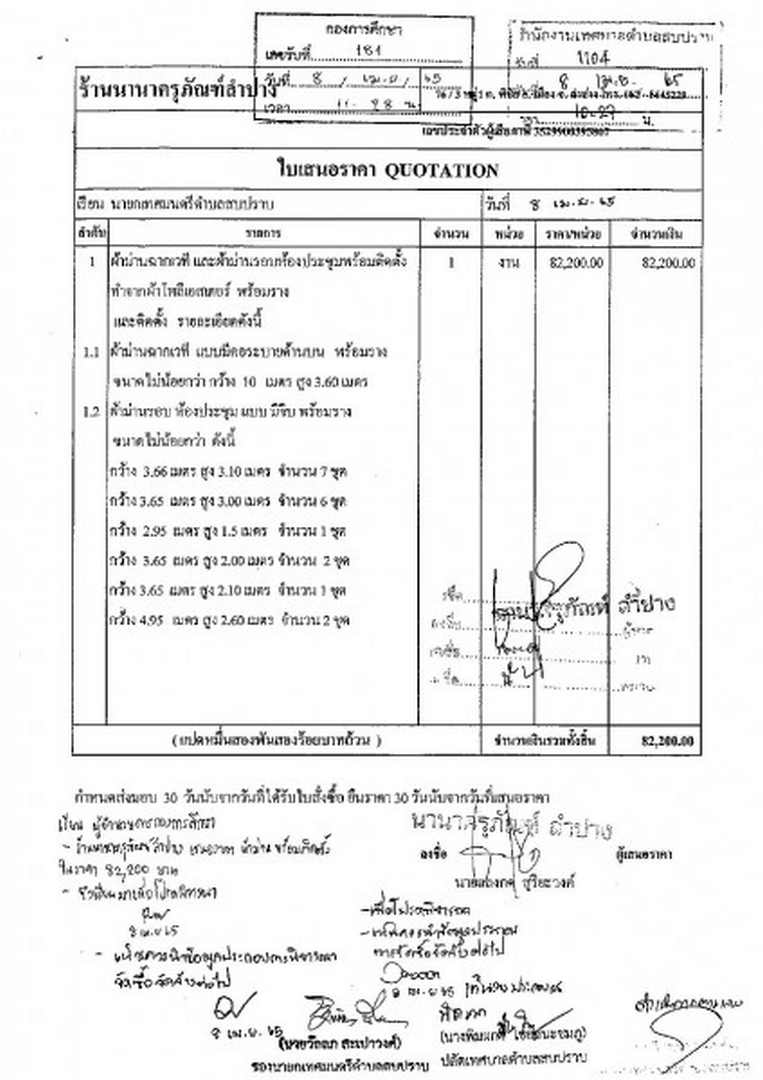 กองการศึกษา
เลขรับที่ 181
วันที่ 8 / เม.ย / 65
เวลา น.
สำนักงานเทศบาลตำบลสบปราบ
รับที่ 1104
วันที่ 8 เม.ย. 65
10.27 น.
ร้านนานาครุภัณฑ์ลำปาง
เลขประจำตัวผู้เสียภาษี
ใบเสนอราคา QUOTATION
เรียน นายกเทศมนตรีตำบลสบปราบ วันที่ 8 เม.ย. 65
ลำดับ รายการ จำนวน หน่วย ราคา/หน่วย จำนวนเงิน
1 ผ้าม่านฉากเวที และผ้าม่านรอบห้องประชุมพร้อมติดตั้ง 1 งาน 82,200.00 82,200.00
ทำจากผ้าโพลีเอสเตอร์ พร้อมราง
และติดตั้ง รายละเอียดดังนี้
1.1 ผ้าม่านฉากเวที แบบมีคอระบายด้านบน พร้อมราง
ขนาดไม่น้อยกว่า กว้าง 10 เมตร สูง 3.60 เมตร
1.2 ผ้าม่านรอบ ห้องประชุม แบบ มีจีบ พร้อมราง
ขนาดไม่น้อยกว่า ดังนี้
กว้าง 3.66 เมตร สูง 3.10 เมตร จำนวน 7 ชุด
กว้าง 3.65 เมตร สูง 3.00 เมตร จำนวน 6 ชุด
กว้าง 2.95 เมตร สูง 1.5 เมตร จำนวน 1 ชุด
กว้าง 3.65 เมตร สูง 2.00 เมตร จำนวน 2 ชุด
กว้าง 3.65 เมตร สูง 2.10 เมตร จำนวน 1 ชุด
กว้าง 4.95 เมตร สูง 2.60 เมตร จำนวน 2 ชุด
(แปดหมื่นสองพันสองร้อยบาทถ้วน) จำนวนเงินรวมทั้งสิ้น 82,200.00
กำหนดส่งมอบ 30 วันนับจากวันที่ได้รับใบสั่งซื้อ ยืนราคา 30 วันนับจากวันที่เสนอราคา
นานาครุภัณฑ์ ลำปาง
ลงชื่อ ผู้เสนอราคา
สุริยะวงค์
เรียน ผู้อำนวยการกองการศึกษา
- ร้านนานาครุภัณฑ์ลำปาง เสนอราคา ผ้าม่าน พร้อมติดตั้ง
ในราคา 82,200 บาท
- จึงเรียนมาเพื่อโปรดพิจารณา
8 เม.ย 65
- เห็นควรนำข้อมูลประกอบการพิจารณา
จัดซื้อจัดจ้างต่อไป
- เพื่อโปรดพิจารณา
- เห็นควรนำข้อมูลประกอบ
การจัดซื้อจัดจ้างต่อไป
8 เม.ย 65
8 เม.ย. 65
รองนายกเทศมนตรีตำบลสบปราบ
ปลัดเทศบาลตำบลสบปราบ